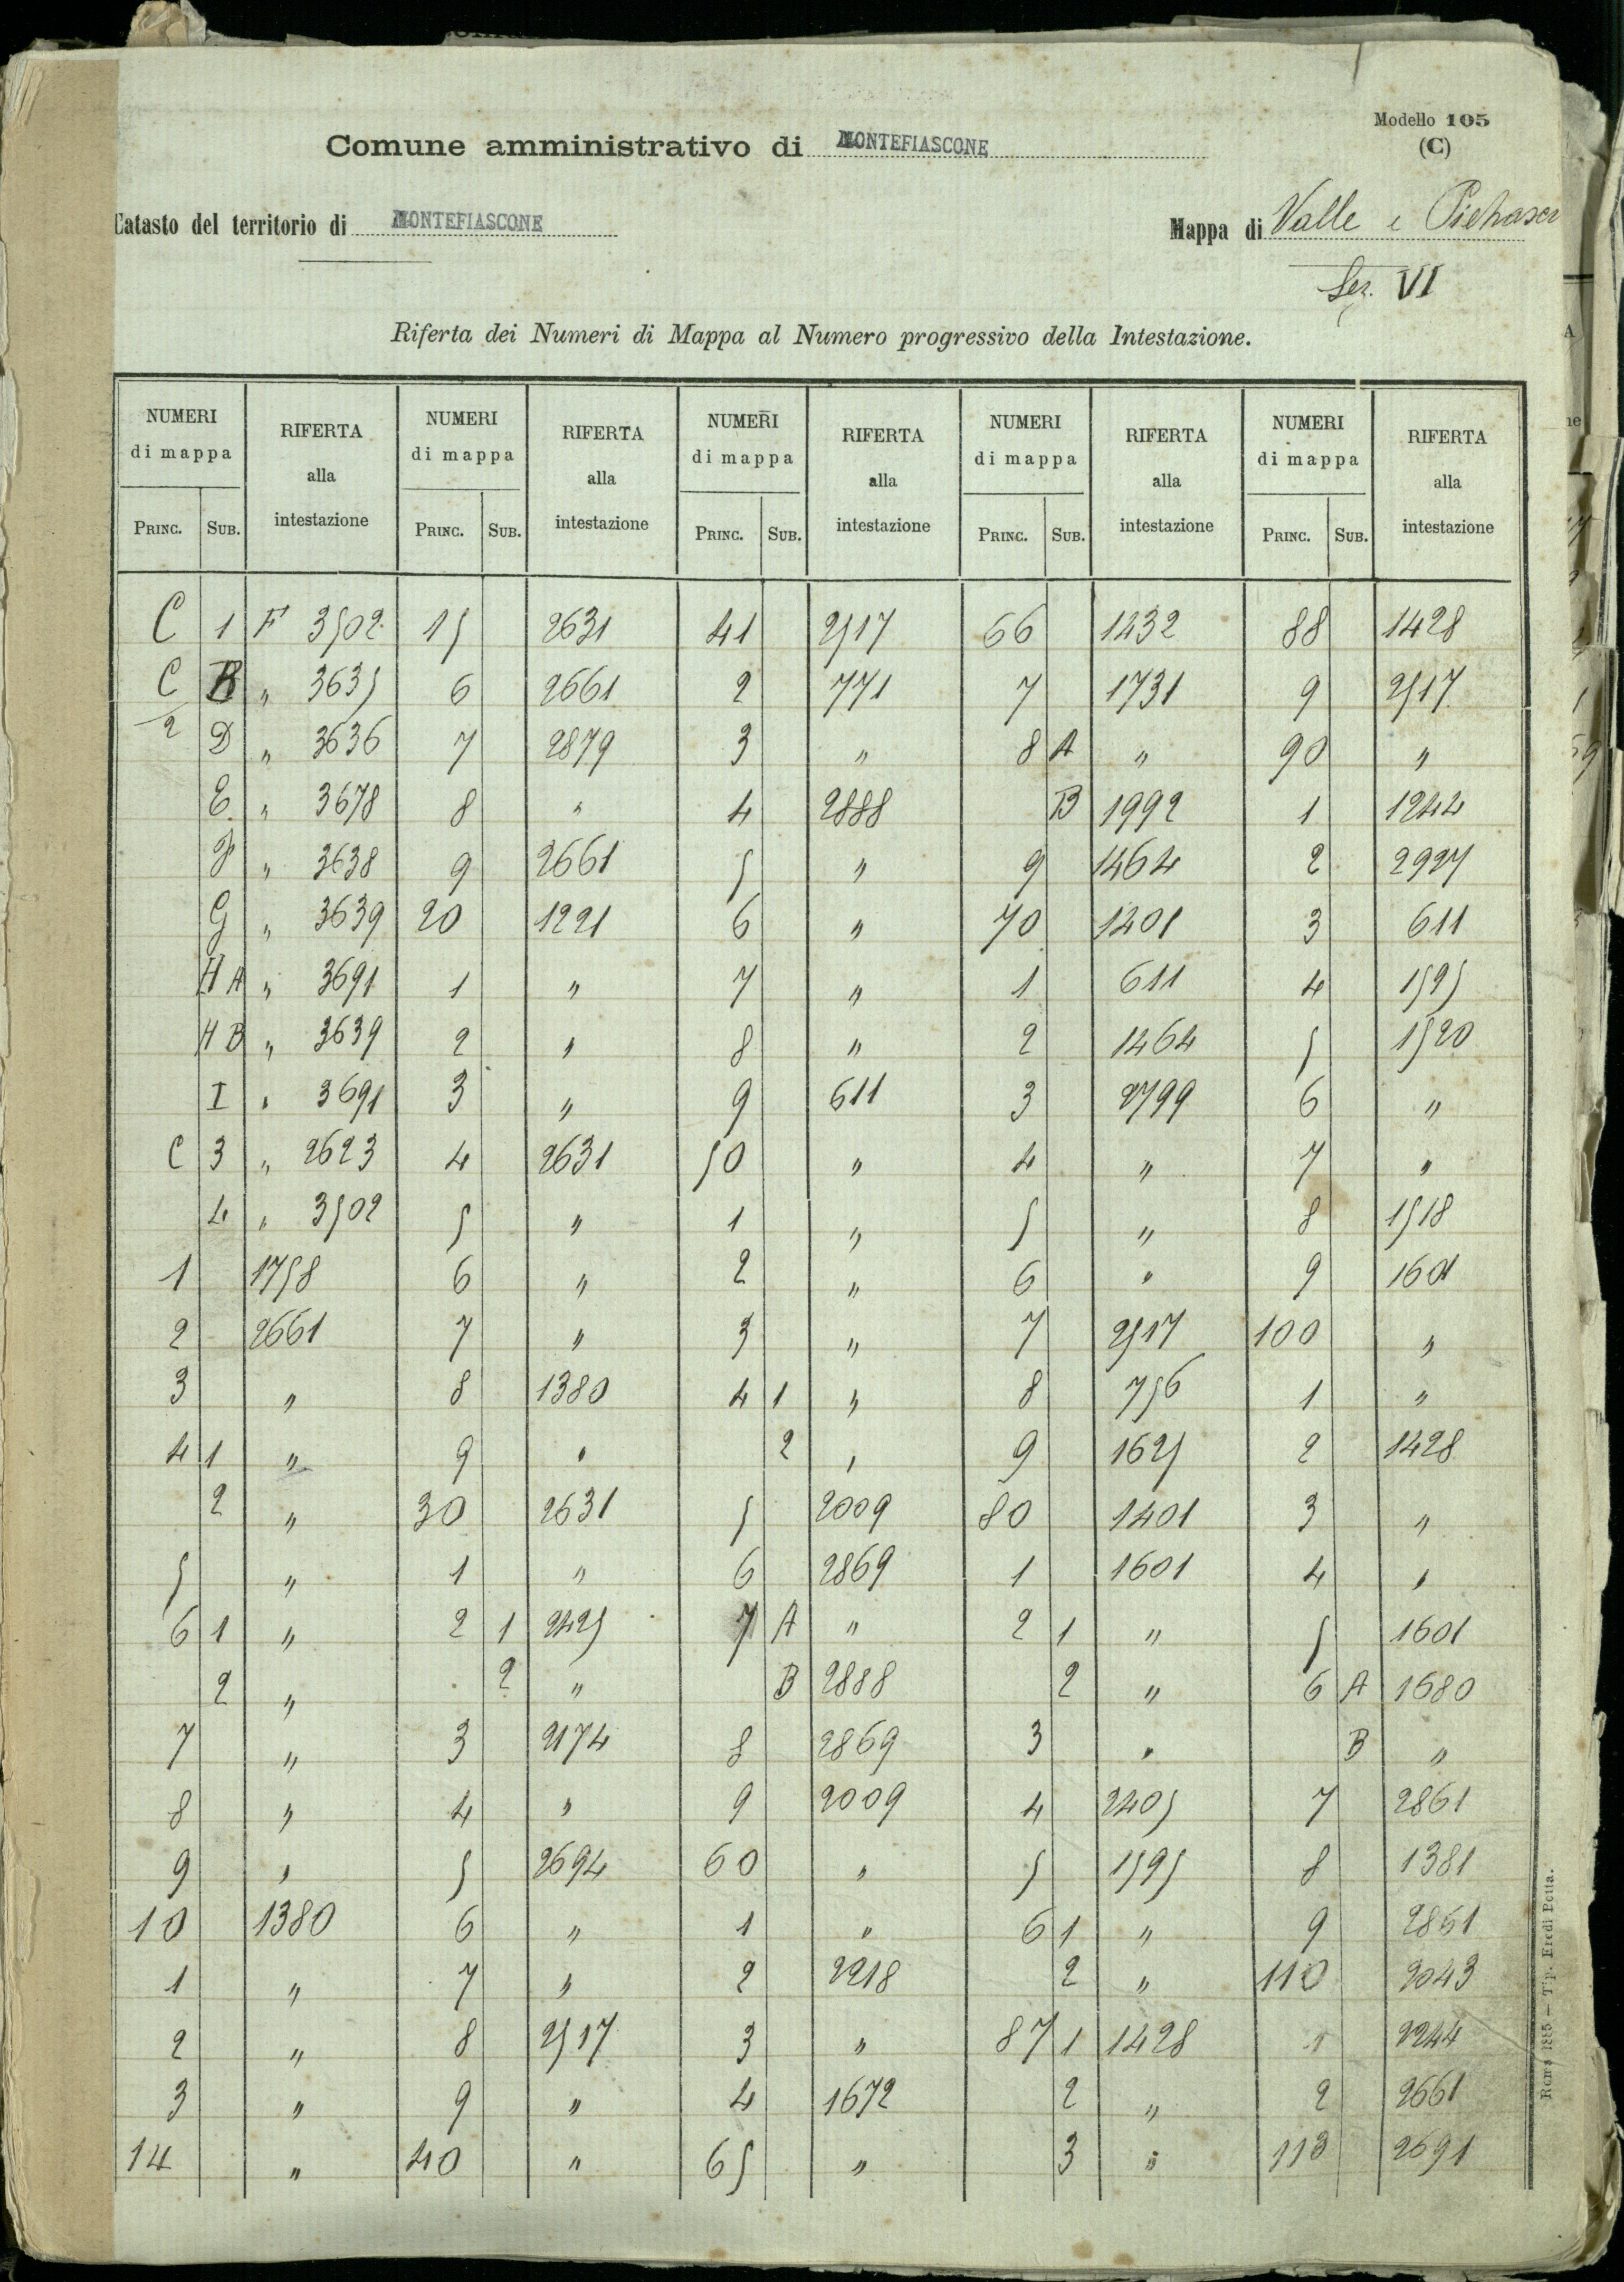 Modello 105
(C)
Comune amministrativo di MONTEFIASCONE
Catasto del territorio di MONTEFIASCONE Mappa di Valle e
Sez. VI
Riferta dei Numeri di Mappa al Numero progressivo della Intestazione.
NUMERI di mappa RIFERTA alla intestazione NUMERI di mappa RIFERTA alla intestazione NUMERI di mappa RIFERTA alla intestazione NUMERI di mappa RIFERTA alla intestazione NUMERI di mappa RIFERTA alla intestazione
PRINC. SUB. PRINC. SUB. PRINC. SUB. PRINC. SUB. PRINC. SUB.
C 1 F 3502 15 2631 41 2517 66 1232 88 1428
C/2 B " 3635 6 2661 2 771 7 1731 9 2517
D " 3636 7 2879 3 " 8 A " 90 "
E " 3678 8 " 4 2888 B 1992 1 1244
F " 3638 9 2661 5 " 9 1464 2 2927
G " 3639 20 1221 6 " 70 1401 3 611
H A " 3691 1 " 7 " 1 611 4 1595
H B " 3639 2 " 8 " 2 1464 5 1520
I " 3691 3 " 9 611 3 2799 6 "
C 3 " 2623 4 2631 50 " 4 " 7 "
4 " 3502 5 " 1 " 5 " 8 1518
1 1758 6 " 2 " 6 " 9 1601
2 2661 7 " 3 " 7 2517 100 "
3 " 8 1380 4 1 " 8 756 1 "
4 1 " 9 " 2 " 9 1625 2 1428
2 " 30 2631 5 2009 80 1401 3 "
5 " 1 " 6 2869 1 1601 4 "
6 1 " 2 1 2425 7 A " 2 1 " 5 1601
2 " 2 " B 2888 2 " 6 A 1680
7 " 3 2174 8 2869 3 " B "
8 " 4 " 9 2009 4 2405 7 2861
9 " 5 2694 60 " 5 1595 8 1381
10 1380 6 " 1 " 6 1 " 9
1 " 7 " 2 2218 2 " 110 2043
2 " 8 2517 3 " 87 1 1428 1 2244
3 " 9 " 4 1672 2 " 2 2661
14 " 40 " 65 " 3 " 113 2691
Roma 1885 — Tip. Eredi Botta.